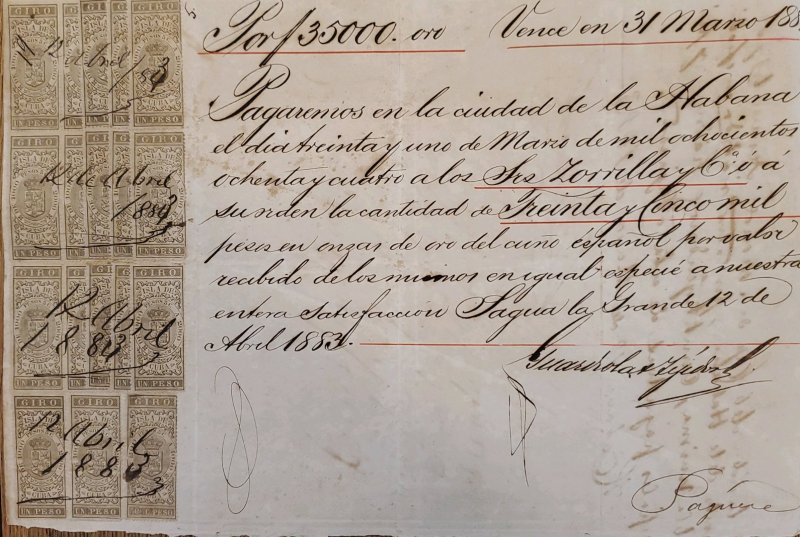 Por ƒ 35000. oro
Vence en 31 Marzo 188
Pagaremos en la ciudad de la Habana
el dia treinta y uno de Marzo de mil ochocientos
ochenta y cuatro a los Srs Zorrilla y Cª ó á
su orden la cantidad de Treinta y Cinco mil
pesos en onzas de oro del cuño español por valor
recibido de los mismos en igual especie a nuestra
entera satisfaccion Sagua la Grande 12 de
Abril 1883.
GIRO GIRO
UN PESO UN PESO
12 Abril 1883
GIRO GIRO
UN PESO UN PESO
12 de Abril
1883
GIRO GIRO
UN PESO UN PESO
12 Abril
1883
GIRO GIRO GIRO
ISLA DE CUBA
UN PESO UN PESO
12 Abril
1883